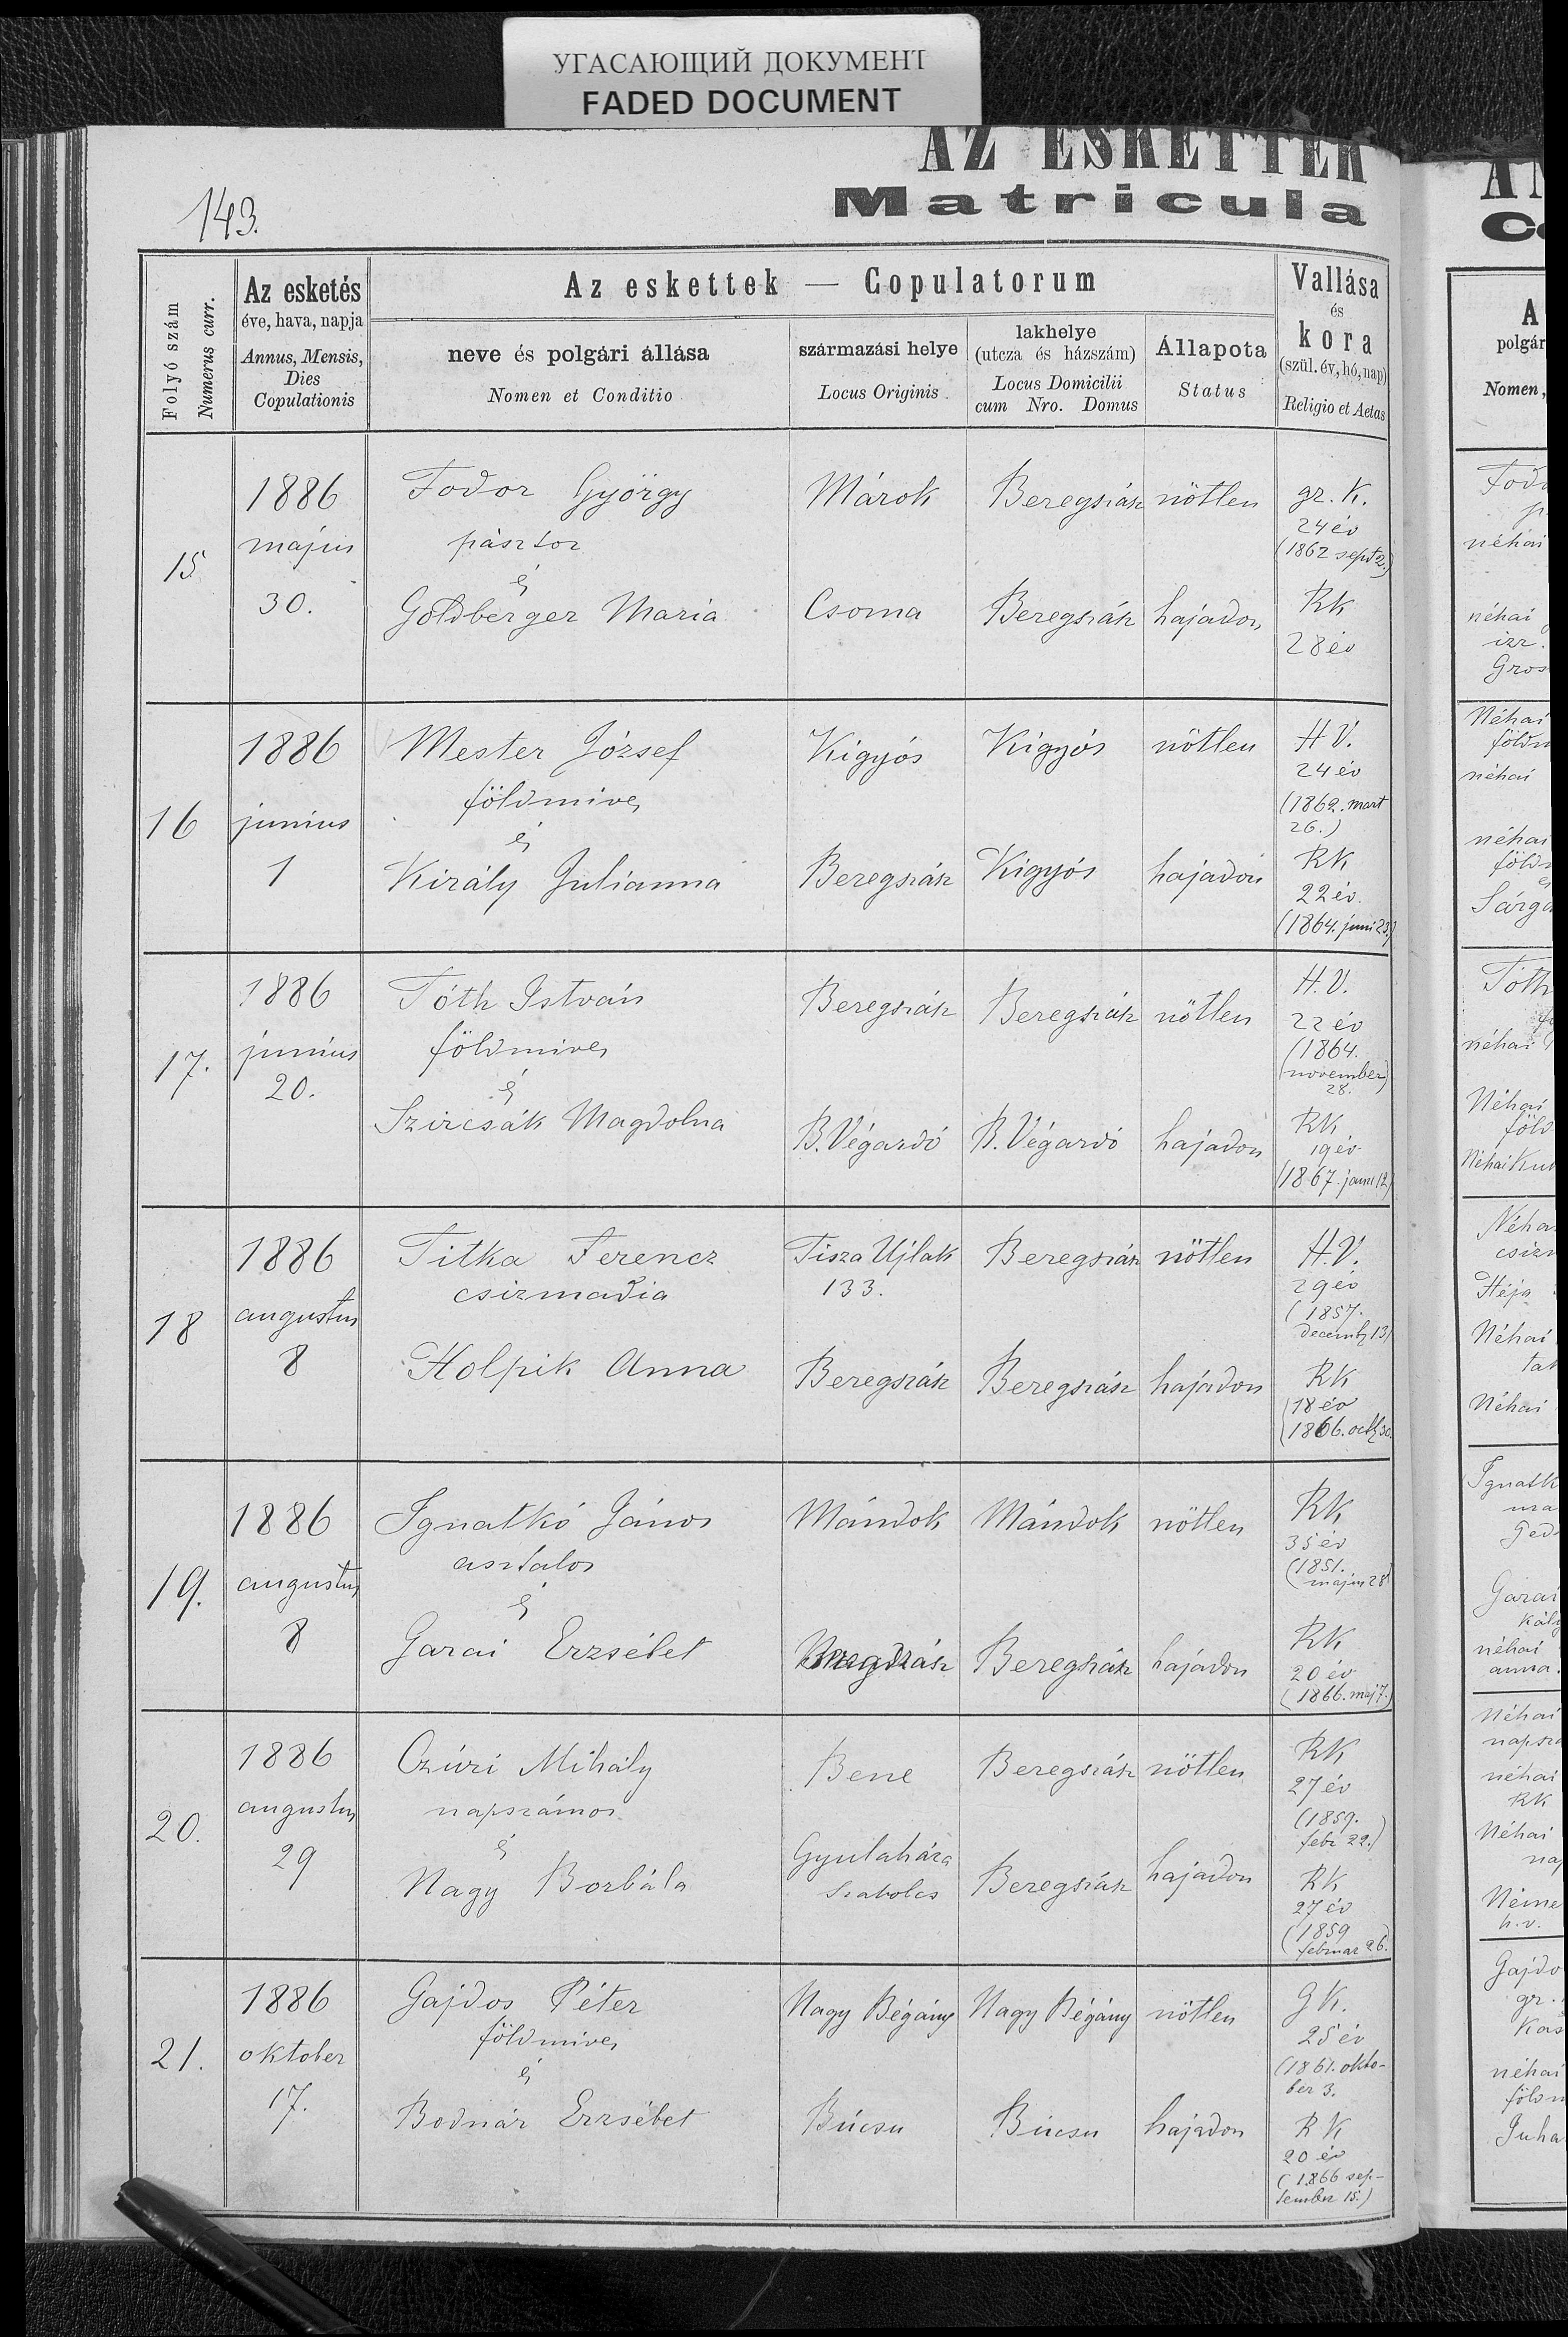 УГАСАЮЩИЙ ДОКУМЕНТ
FADED DOCUMENT
AZ ESKETTEK
Matricula
143.
Folyó szám
Numerus curr.
Az esketés
éve, hava, napja
Annus, Mensis,
Dies
Copulationis
Az eskettek — Copulatorum
neve és polgári állása
Nomen et Conditio
származási helye
Locus Originis
lakhelye
(utcza és házszám)
Locus Domicilii
cum Nro. Domus
Állapota
Status
Vallása
és
kora
(szül. év, hó, nap)
Religio et Aetas
15
1886
május
30.
Fodor György
pásztor
és
Goldberger Maria
Márok
Beregszász
nőtlen
gr. K.
24 év
(1862 sept 2.)
Csoma
Beregszász
hajadon
RK
28 év
16
1886
junius
1
Mester József
földmives
és
Király Julianna
Kigyós
Kigyós
nőtlen
H V.
24 év
(1862. mart
26.)
Beregszász
Kigyós
hajadon
RK
22 év.
(1864. juni 23.)
17.
1886
junius
20.
Tóth István
földmives
és
Szircsák Magdolna
Beregszász
Beregszász
nőtlen
H. V.
22 év
(1864.
november
28.)
B. Végardó
B. Végardó
hajadon
RK
19 év
(1867. janu 12)
18
1886
augustus
8
Titka Ferencz
csizmadia
Holpik Anna
Tisza Ujlak
133.
Beregszász
nőtlen
H. V.
29 év
(1857.
decemb 13)
Beregszász
Beregszász
hajadon
RK
18 év
(1866. octb 30.
19.
1886
augustus
8
Ignatkó János
asztalos
és
Garai Erzsébet
Mándok
Mándok
nőtlen
RK
35 év
(1851.
május 28)
Beregszász
hajadon
RK
20 év
(1866. maj 7.)
20.
1886
augustus
29
Czüri Mihály
napszámos
és
Nagy Borbála
Bene
Beregszász
nőtlen
RK
27 év
(1859.
febr 22.)
Gyulaháza
Szabolcs
Beregszász
hajadon
RK
27 év
(1859
februar 26.)
21.
1886
oktober
17.
Gajdos Péter
földmives
és
Bodnár Erzsébet
Nagy Bégány
Nagy Bégány
nőtlen
G K.
25 év
(1861. okto-
ber 3.
Búcsu
Búcsu
hajadon
R K
20 év
(1866 sep-
tember 15.)
A
polgár
Nomen,
néhai
néhai
izr.
Gros
Néhai
néhai
néhai
Tóth
néhai
Néhai
föld
Néhai
Héja
Néhai
Néhai
Garai
néhai
anna.
Néhai
néhai
RK
Néhai
h.v.
Gajdo
gr.
néhai
Juha